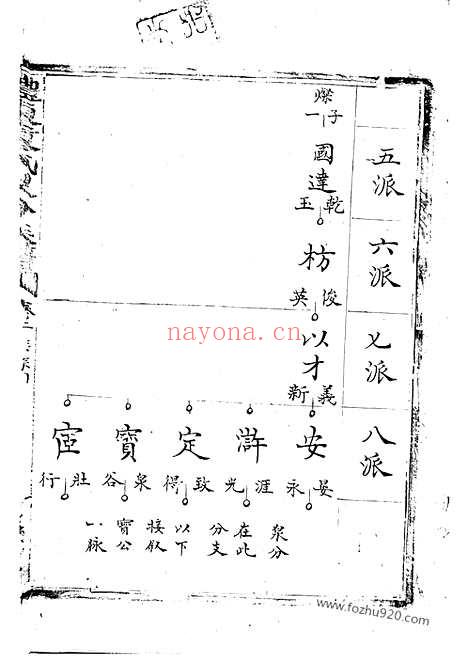 五派
六派
七派
八派
燦子一
國達
乾玉
枋
俊英
以才
義新
安
晏永
滸
涯光
定
致得
寶
泉谷
宦
壯行
泉分
在此
分支
以下
接叙
寶公
一脉
nayona.cn
www.fozhu920.com